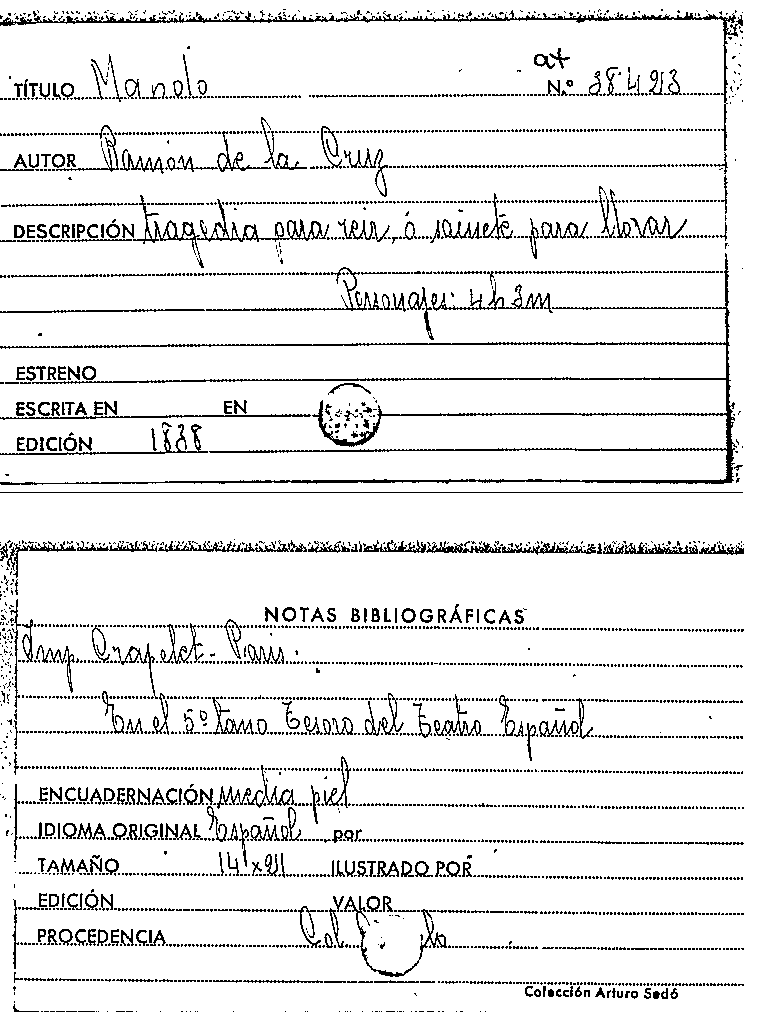 TÍTULO Manolo
at
N.º 38423
AUTOR Ramón de la Cruz
DESCRIPCIÓN tragedia para reir, ó sainete para llorar
Personajes: 4 h 3 m
ESTRENO
ESCRITA EN EN
EDICIÓN 1838
NOTAS BIBLIOGRÁFICAS
Imp. Crapelet - Paris.
En el 5º tomo Tesoro del Teatro Español
ENCUADERNACIÓN media piel
IDIOMA ORIGINAL Español por
TAMAÑO 14 x 21 ILUSTRADO POR
EDICIÓN VALOR
PROCEDENCIA Col.
Colección Arturo Sedó